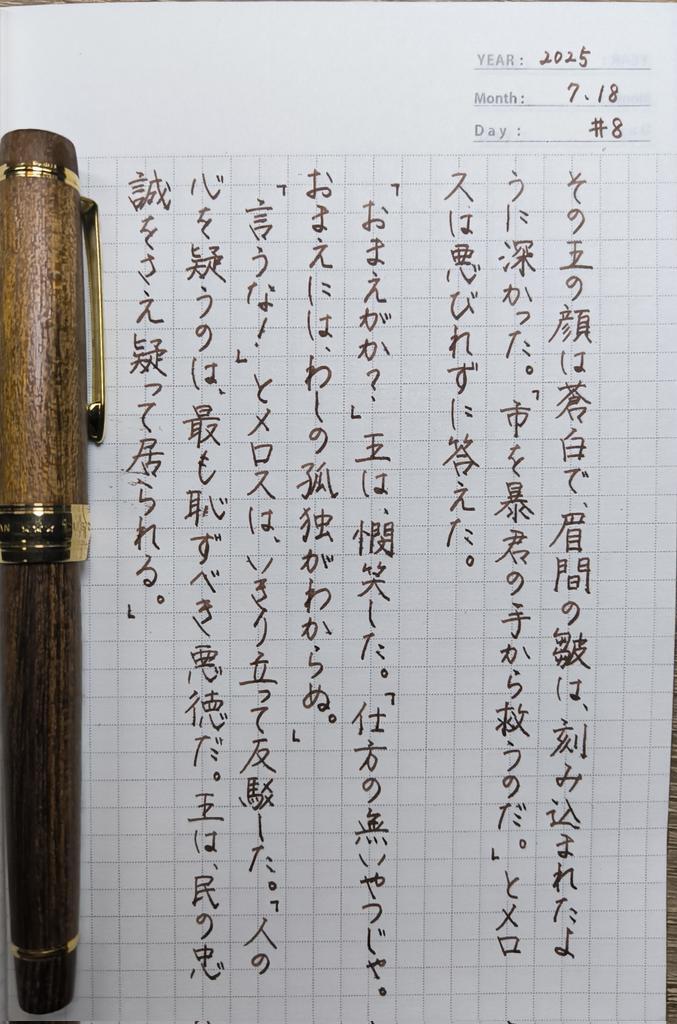 YEAR: 2025
Month: 7.18
Day: #8
その王の顔は蒼白で、眉間の皺は、刻み込まれたよ
うに深かった。「市を暴君の手から救うのだ。」とメロ
スは悪びれずに答えた。
「おまえがか?」王は、憫笑した。「仕方の無いやつじゃ。
おまえには、わしの孤独がわからぬ。」
「言うな!」とメロスは、いきり立って反駁した。「人の
心を疑うのは、最も恥ずべき悪徳だ。王は、民の忠
誠をさえ疑って居られる。」